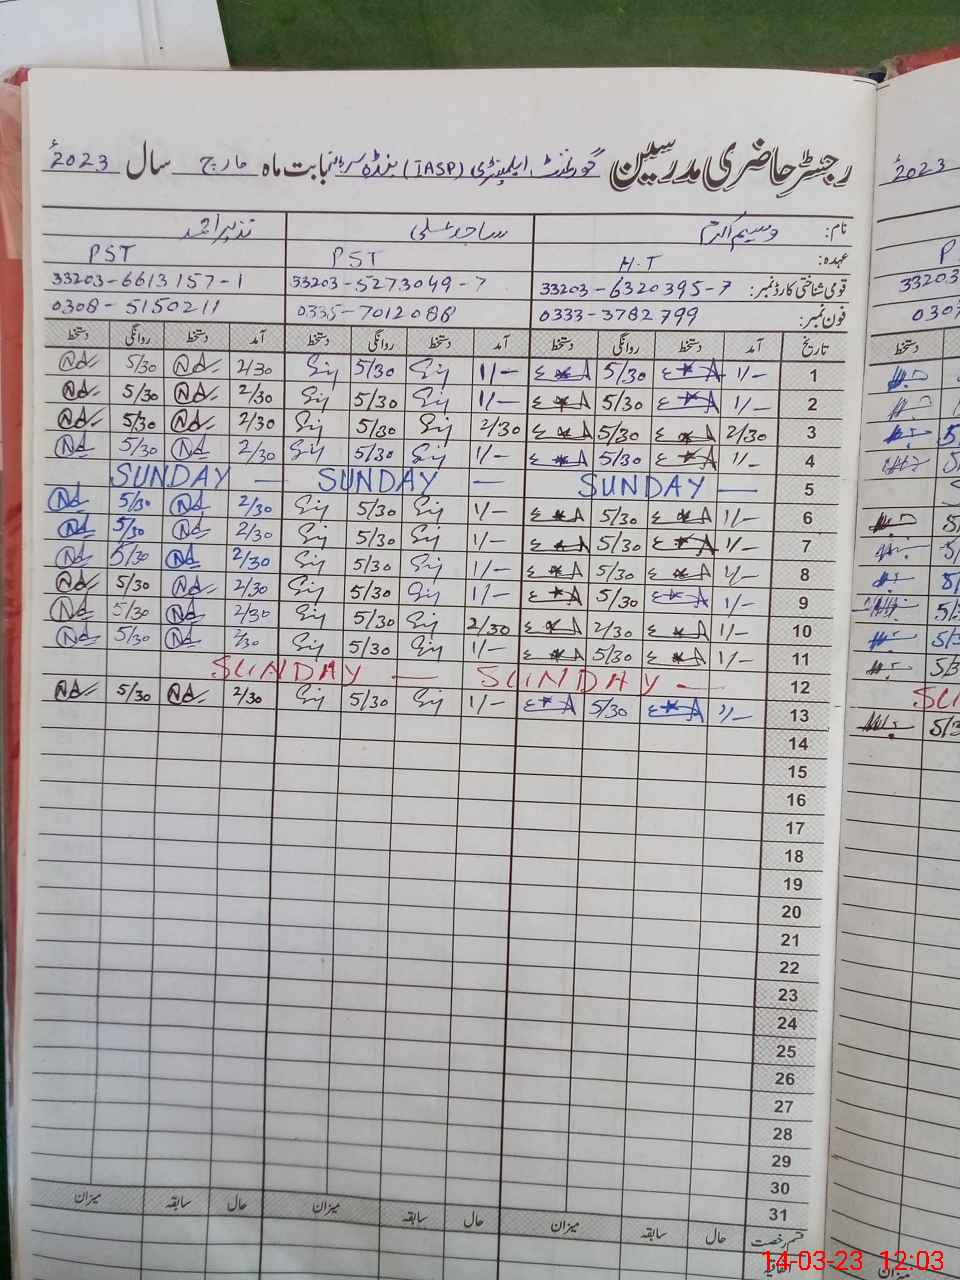 رجسٹر حاضری مدرسین گورنمنٹ ایلیمنٹری (IASP) بابت ماہ مارچ سال 2023ء
نام: وسیم اکرم ساجد علی نذیر احمد
عہدہ: H.T PST PST
قومی شناختی کارڈ نمبر: 33203-6320395-7 33203-5273049-7 33203-6613157-1
فون نمبر: 0333-3782799 0335-7012086 0308-5150211
تاریخ آمد دستخط روانگی دستخط آمد دستخط روانگی دستخط آمد دستخط روانگی دستخط
1 1/- 5/30 1/- 5/30 2/30 5/30
2 1/- 5/30 1/- 5/30 2/30 5/30
3 2/30 5/30 2/30 5/30 2/30 5/30
4 1/- 5/30 1/- 5/30 2/30 5/30
5 SUNDAY — SUNDAY — SUNDAY —
6 1/- 5/30 1/- 5/30 2/30 5/30
7 1/- 5/30 1/- 5/30 2/30 5/30
8 1/- 5/30 1/- 5/30 2/30 5/30
9 1/- 5/30 1/- 5/30 2/30 5/30
10 1/- 2/30 2/30 5/30 2/30 5/30
11 1/- 5/30 1/- 5/30 2/30 5/30
12 SUNDAY — SUNDAY —
13 1/- 5/30 1/- 5/30 2/30 5/30
14
15
16
17
18
19
20
21
22
23
24
25
26
27
28
29
30
31
قسم رخصت حال سابقہ میزان حال سابقہ میزان حال سابقہ میزان
اتفاقیہ
2023
33203
دستخط
میزان
14-03-23 12:03